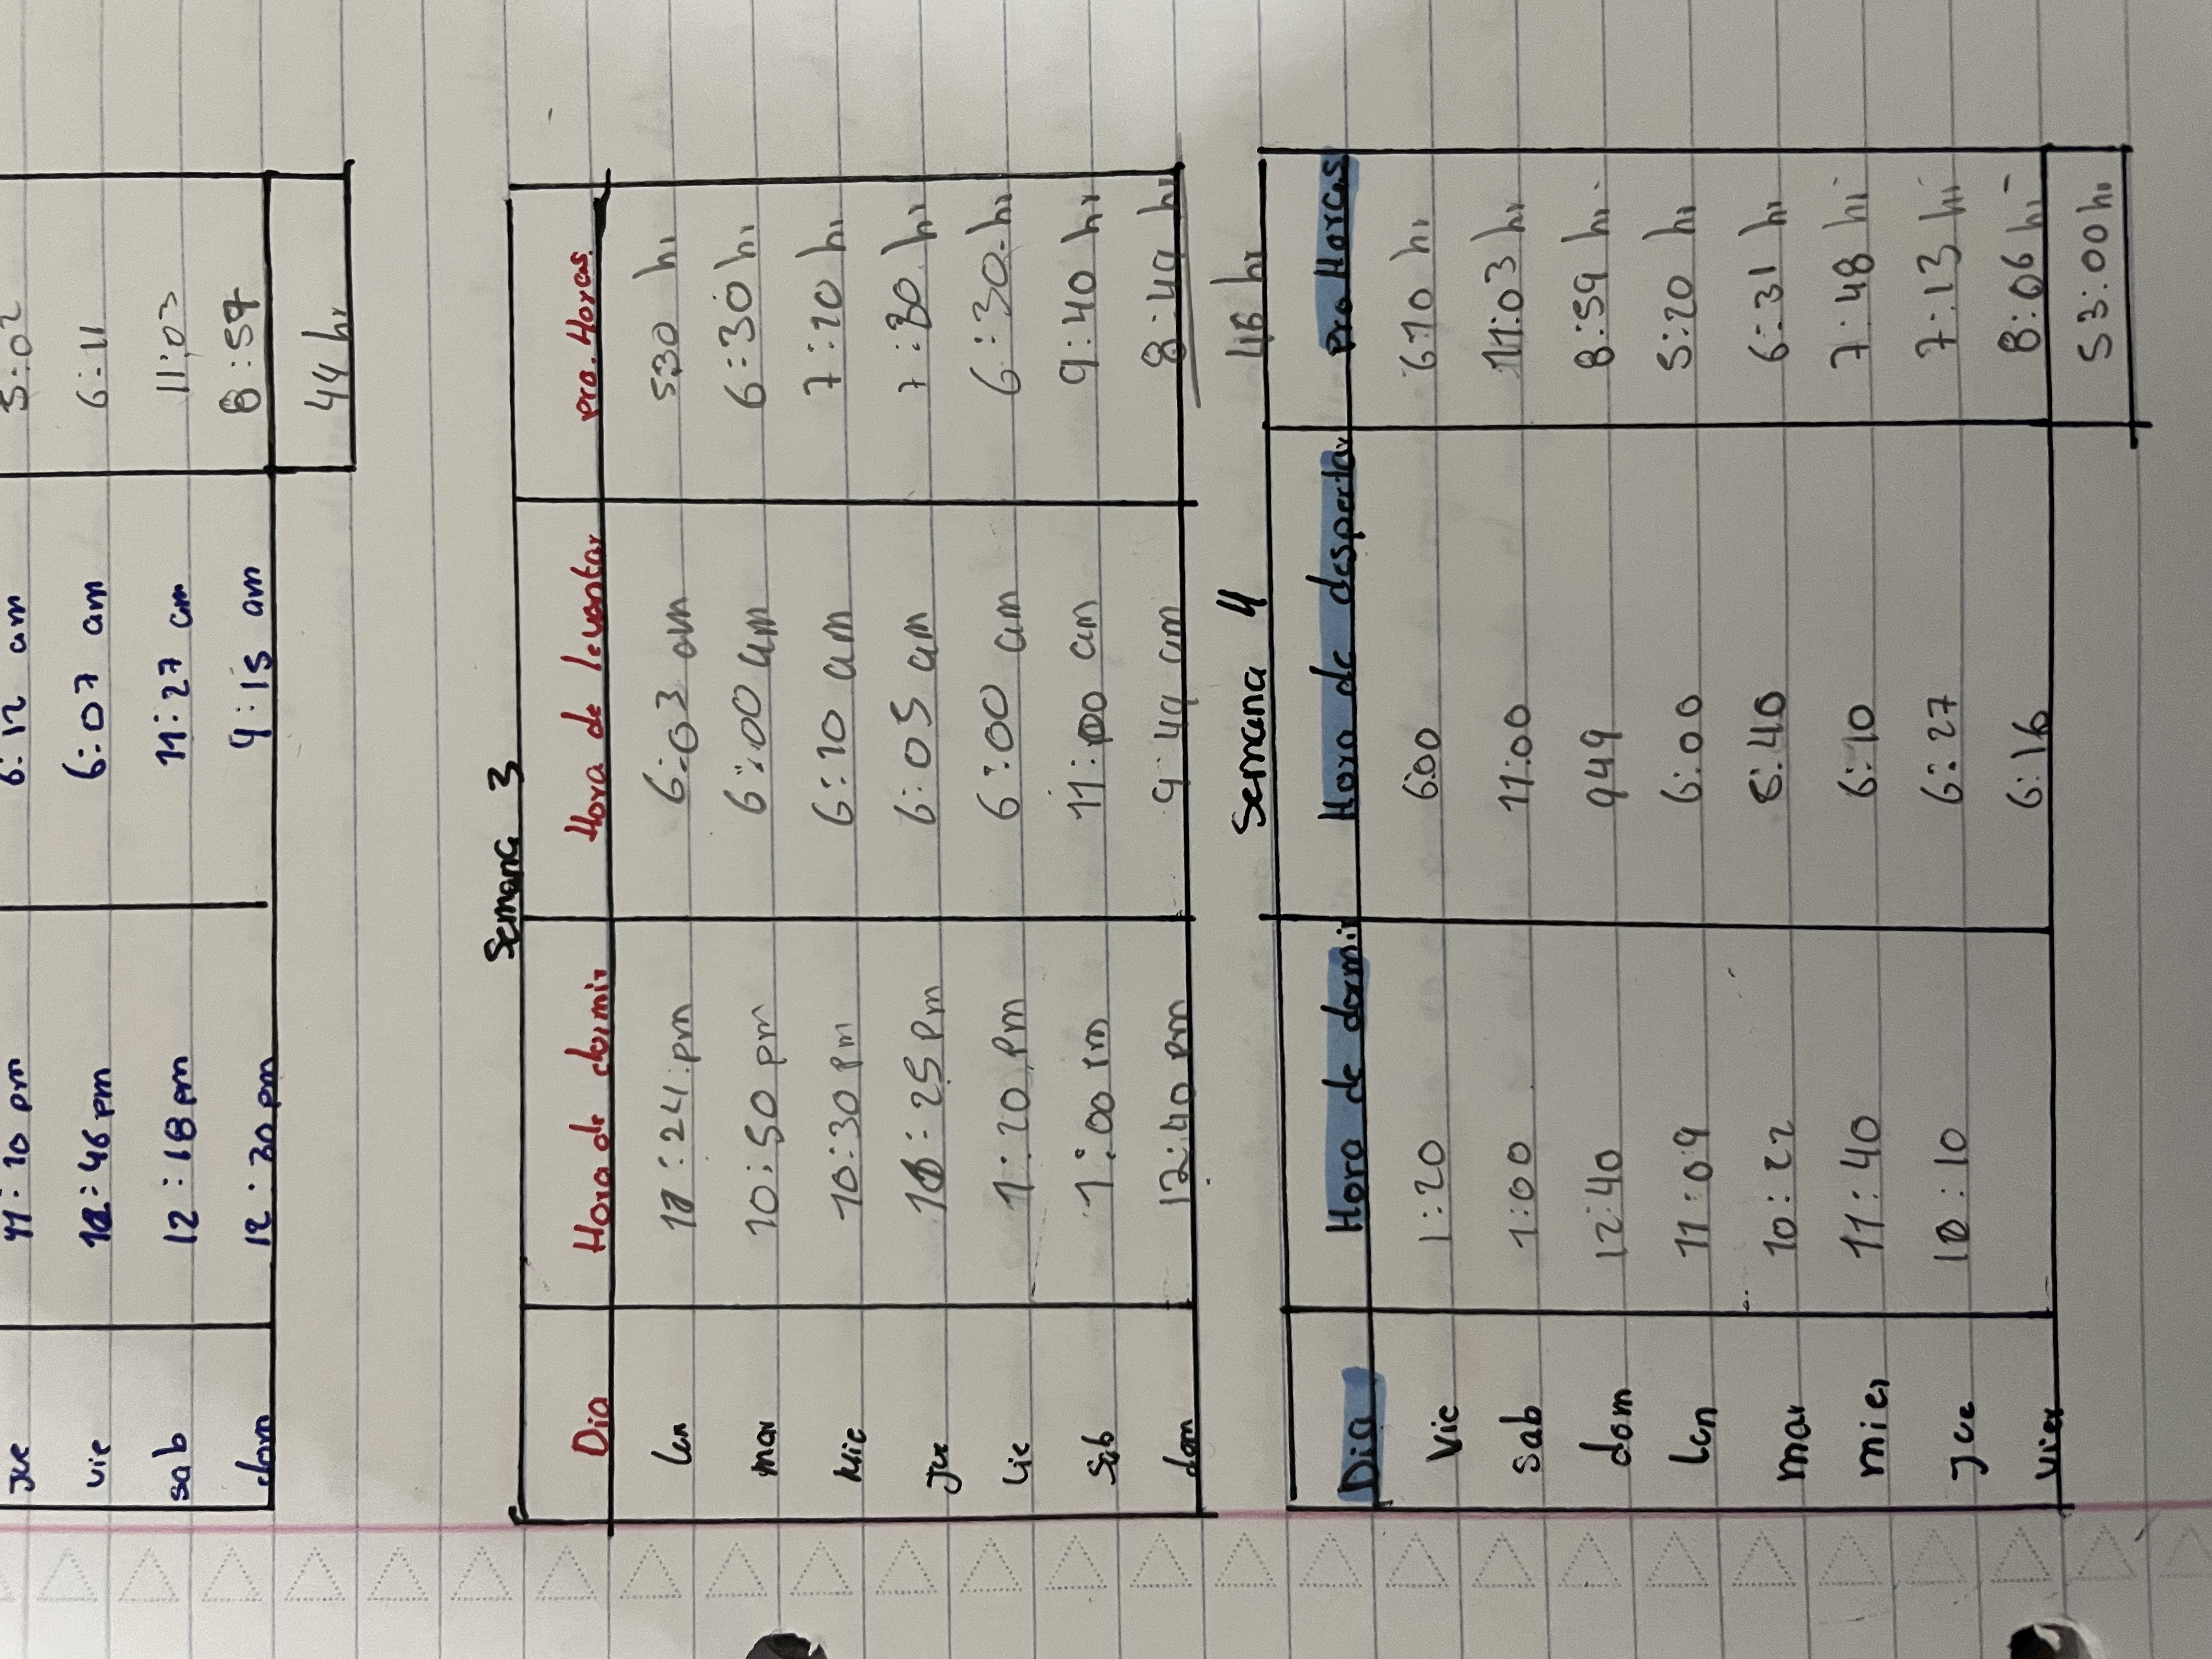 jue 11:10 pm 6:12 am 5:02
vie 12:46 pm 6:07 am 6:11
sab 12:18 pm 11:27 am 11:03
dom 12:30 pm 9:15 am 8:57
44 hr
Semana 3
Dia Hora de dormir Hora de levantar pro. Horas
lun 11:24 pm 6:03 am 5:30 hr
mar 10:50 pm 6:00 am 6:30 hr
Mie 10:30 pm 6:10 am 7:20 hr
Jue 10:25 pm 6:05 am 7:30 hr
Vie 1:20 pm 6:00 am 6:30 hr
Sab 1:00 pm 11:00 am 9:40 hr
dom 12:40 pm 9:49 am 8:49 hr
46 hr
Semana 4
Dia Hora de dormir Hora de despertar pro Horas
Vie 1:20 6:00 6:10 hr
sab 1:00 11:00 11:03 hr
dom 12:40 9:49 8:59 hr
lun 11:09 6:00 5:20 hr
mar 10:22 6:40 6:31 hr
mier 11:40 6:10 7:48 hr
Jue 10:10 6:27 7:13 hr
vier 6:16 8:06 hr
53:00 hr